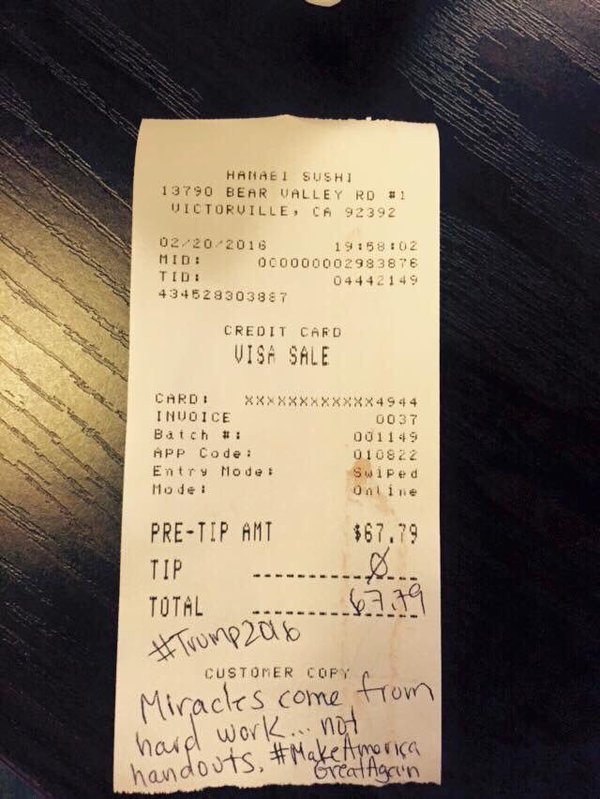 HANABI SUSHI
13790 BEAR VALLEY RD #1
VICTORVILLE, CA 92392
02/20/2016 19:58:02
MID: 000000002983876
TID: 04442149
434528303887
CREDIT CARD
VISA SALE
CARD: XXXXXXXXXXXX4944
INVOICE 0037
Batch #: 001149
APP Code: 010822
Entry Mode: Swiped
Mode: Online
PRE-TIP AMT $67.79
TIP Ø
TOTAL 67.79
#Trump2016
CUSTOMER COPY
Miracles come from
hard work... not
handouts. #MakeAmerica
GreatAgain